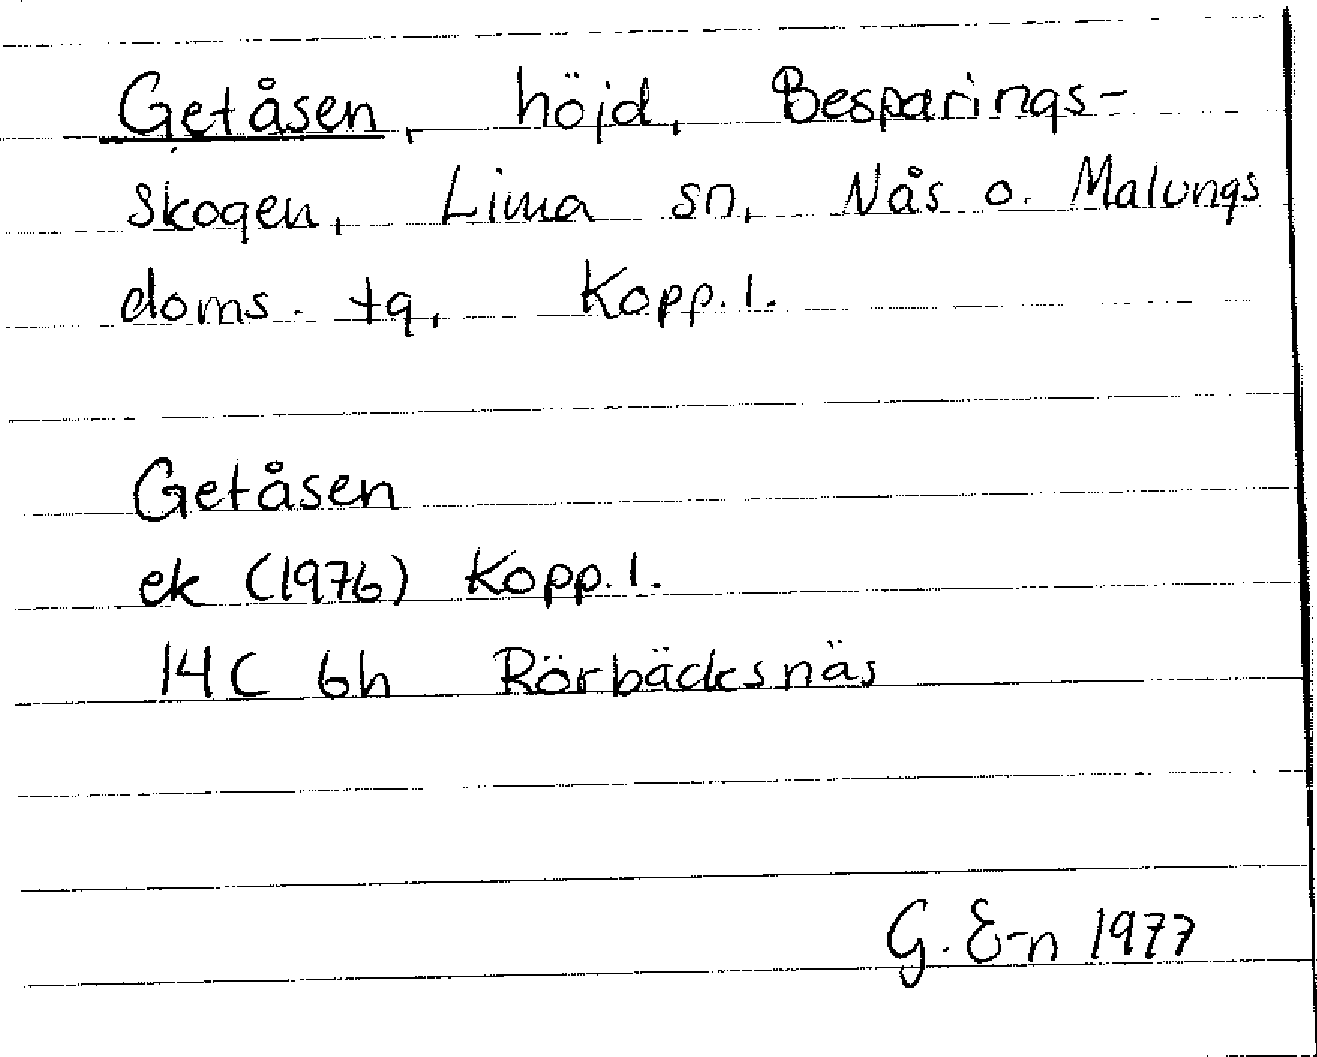 Getåsen, höjd, Besparings-
skogen, Lima sn, Nås o. Malungs
doms. tg, Kopp. l.
Getåsen
ek (1976) Kopp. l.
14C 6h Rörbäcksnäs
G. E-n 1977